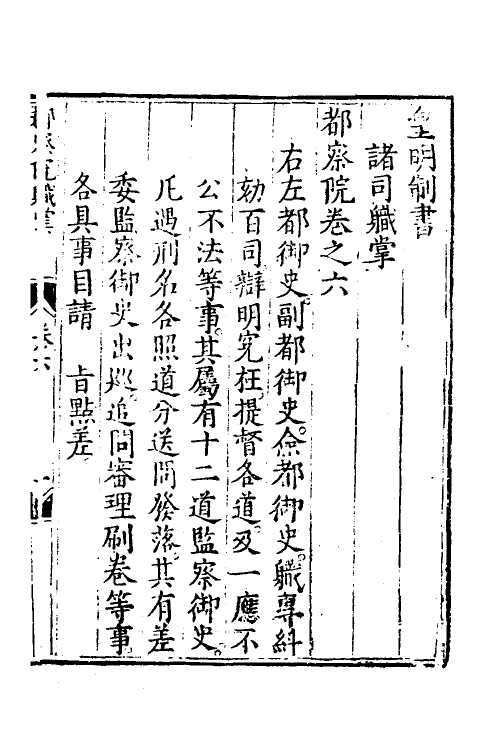 皇明制書
諸司職掌
都察院卷之六
右左都御史。副都御史。僉都御史。職專糾
劾百司。辯明冤枉。提督各道。及一應不
公不法等事。其屬有十二道監察御史。
凡遇刑名各照道分送問發落。其有差
委監察御史出巡。追問審理刷卷等事。
各具事目請　旨點差。
都察院職掌
卷六